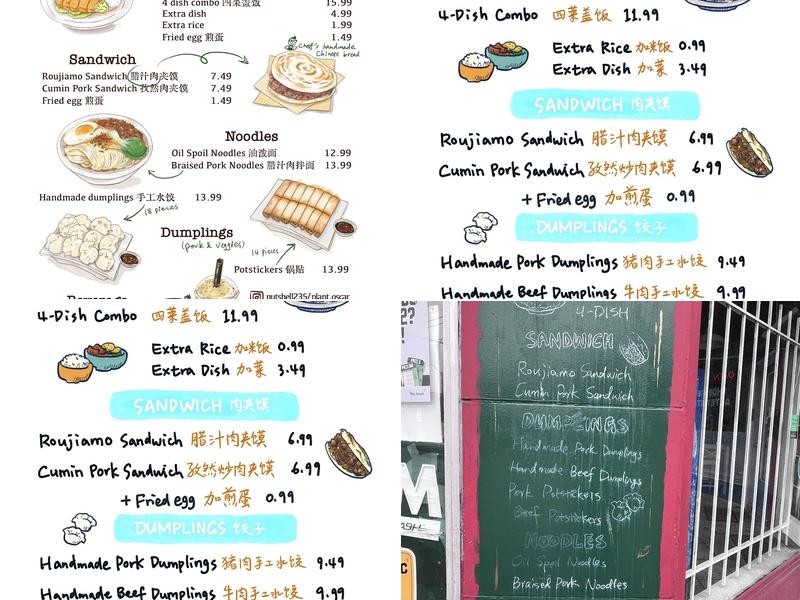 4 dish combo 四菜盖饭 15.99
Extra dish 4.99
Extra rice 1.99
Fried egg 煎蛋 1.49
Chef's handmade
Chinese bread
Sandwich
Roujiamo Sandwich 腊汁肉夹馍 7.49
Cumin Pork Sandwich 孜然肉夹馍 7.49
Fried egg 煎蛋 1.49
Noodles
Oil Spoil Noodles 油泼面 12.99
Braised Pork Noodles 腊汁肉拌面 13.99
Handmade dumplings 手工水饺 13.99
18 pieces
Dumplings
(pork & veggies)
14 pieces
Potstickers 锅贴 13.99
nutshell235/plant.oscar
4-Dish Combo 四菜盖饭 11.99
Extra Rice 加米饭 0.99
Extra Dish 加菜 3.49
SANDWICH 肉夹馍
Roujiamo Sandwich 腊汁肉夹馍 6.99
Cumin Pork Sandwich 孜然炒肉夹馍 6.99
+ Fried egg 加煎蛋 0.99
DUMPLINGS 饺子
Handmade Pork Dumplings 猪肉手工水饺 9.49
Handmade Beef Dumplings 牛肉手工水饺 9.99
4-Dish Combo 四菜盖饭 11.99
Extra Rice 加米饭 0.99
Extra Dish 加菜 3.49
SANDWICH 肉夹馍
Roujiamo Sandwich 腊汁肉夹馍 6.99
Cumin Pork Sandwich 孜然炒肉夹馍 6.99
+ Fried egg 加煎蛋 0.99
DUMPLINGS 饺子
Handmade Pork Dumplings 猪肉手工水饺 9.49
Handmade Beef Dumplings 牛肉手工水饺 9.99
4-DISH
SANDWICH
Roujiamo Sandwich
Cumin Pork Sandwich
DUMPLINGS
Handmade Pork Dumplings
Handmade Beef Dumplings
Pork Potstickers
Beef Potstickers
NOODLES
Oil Spoil Noodles
Braised Pork Noodles